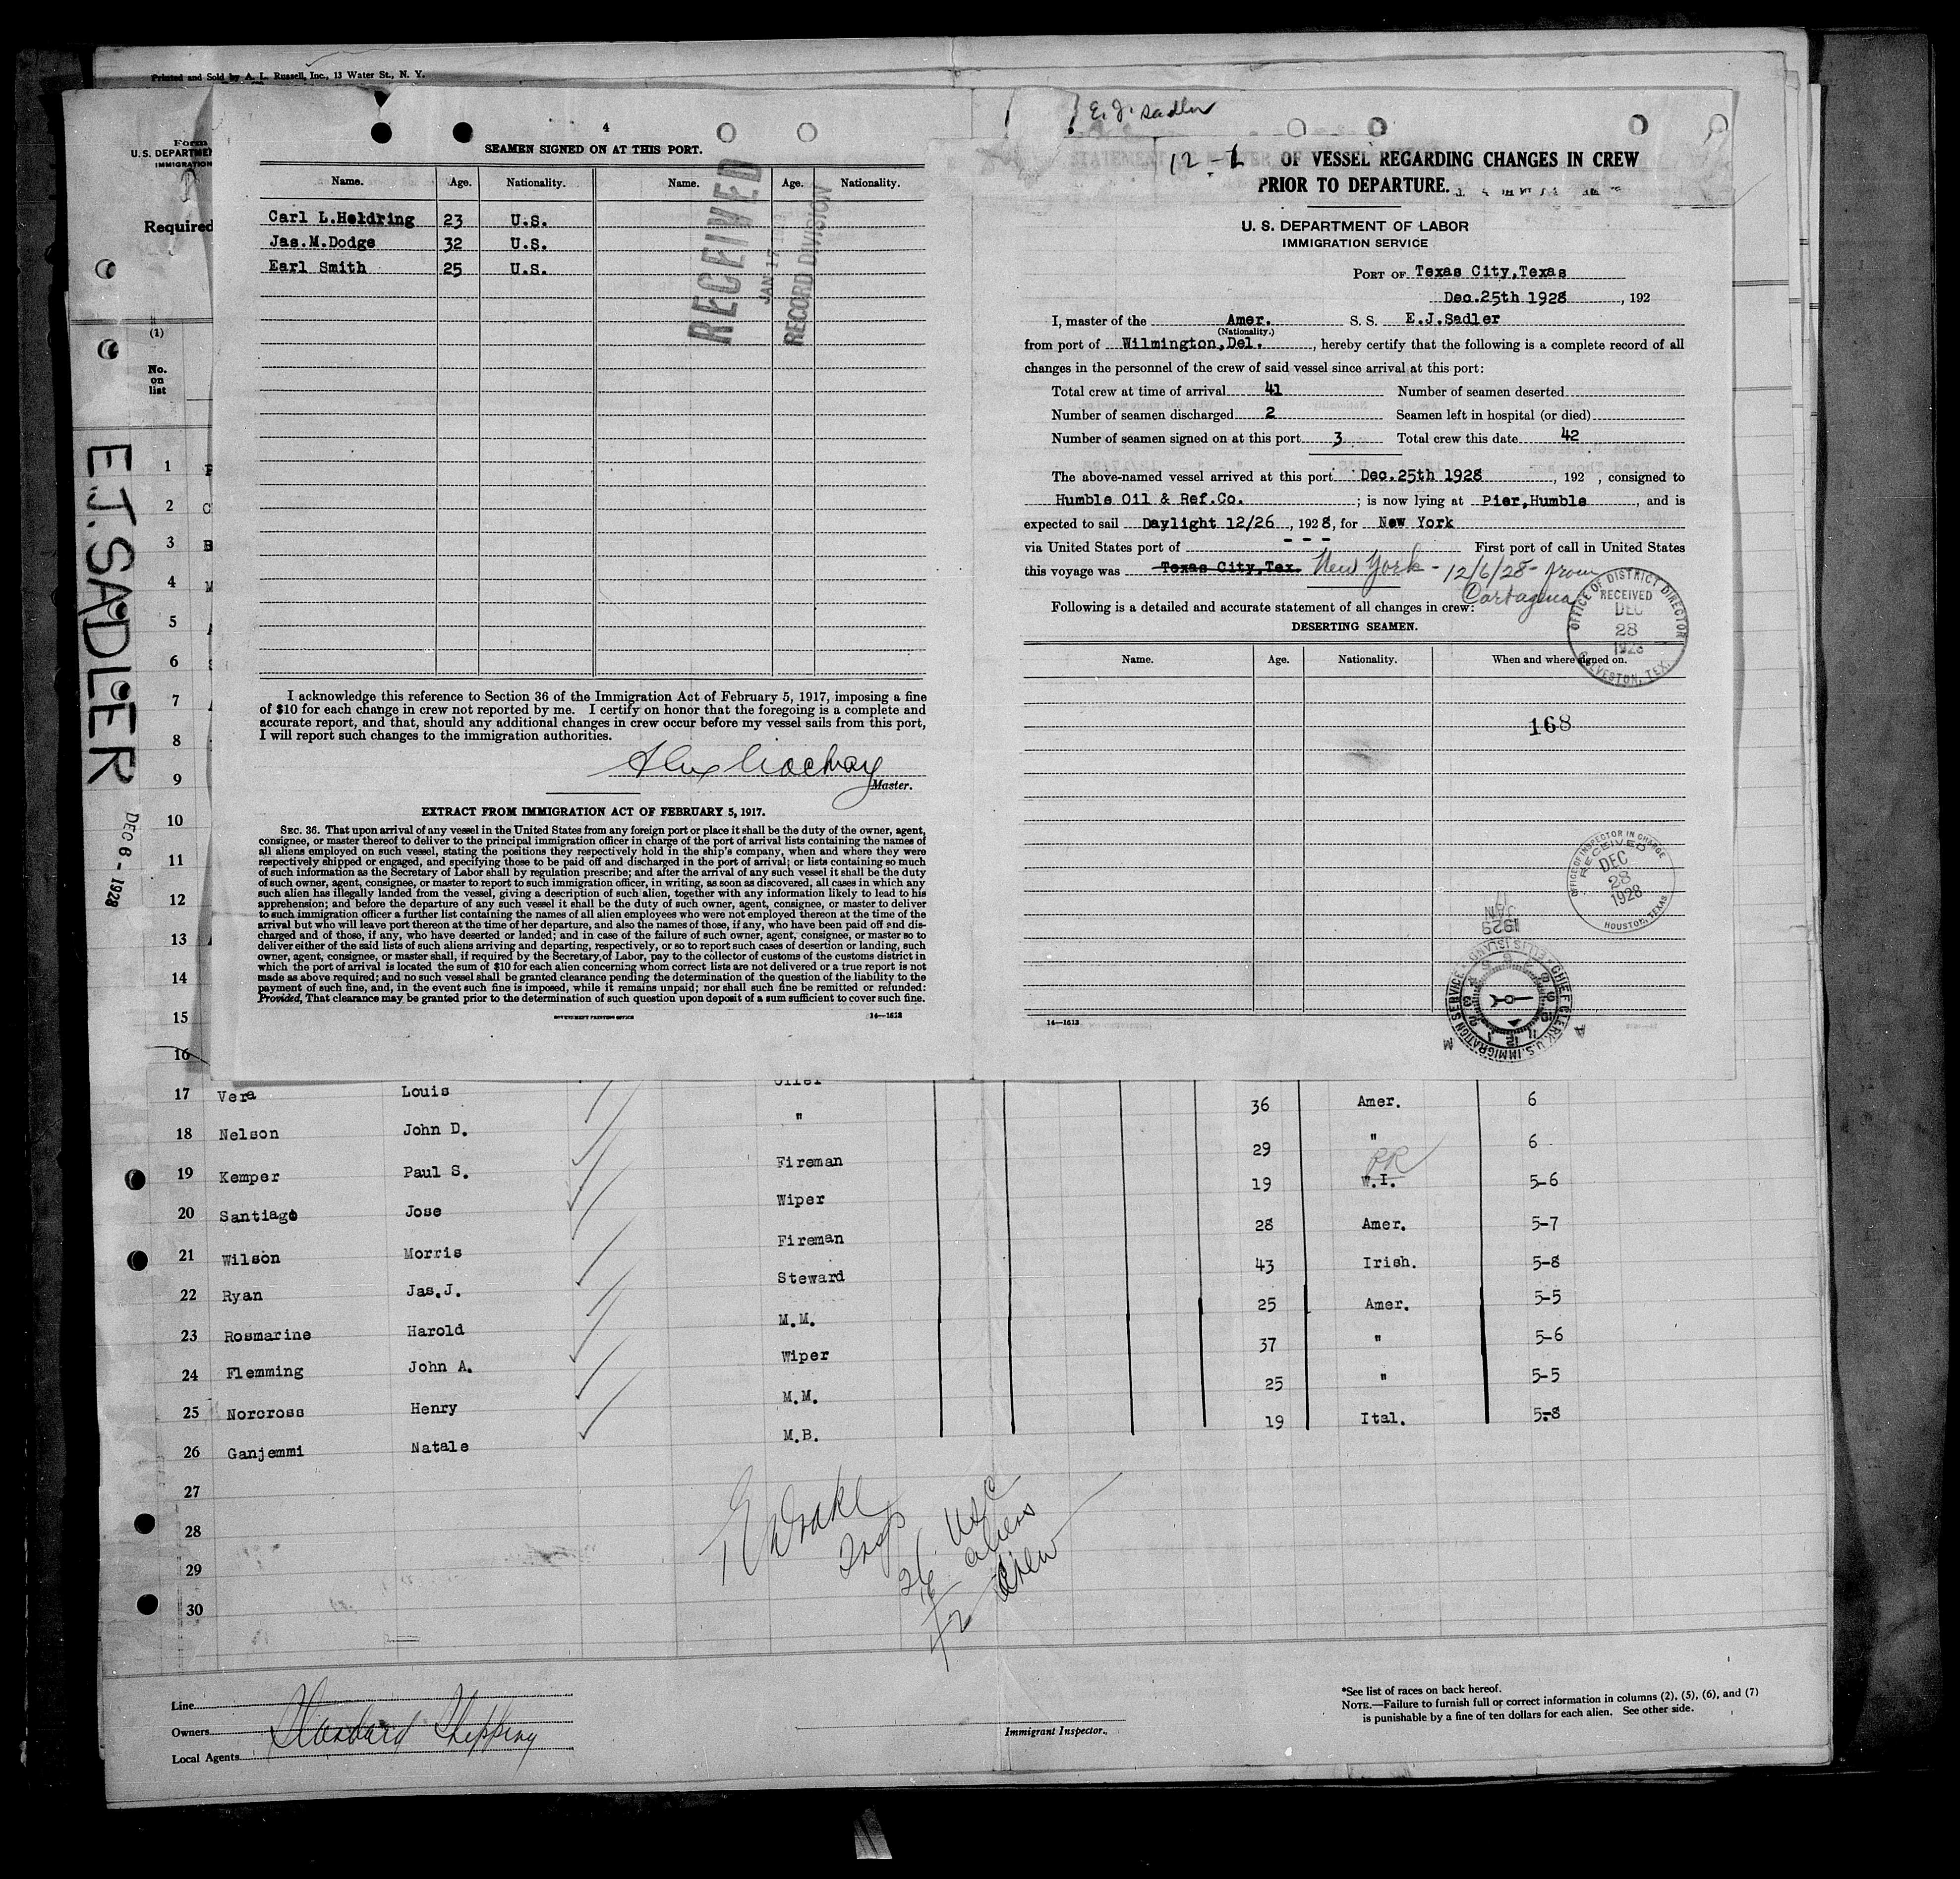 Printed and Sold by A. L. Russell, Inc., 13 Water St., N. Y.
Form
U. S. DEPARTME
IMMIGRATION
Required
(1)
No.
on
list
E.J. SADLER
DEC 6 - 1928
4
SEAMEN SIGNED ON AT THIS PORT.
Name. Age. Nationality. Name. Age. Nationality.
Carl L.Heldring 23 U.S.
Jas.M.Dodge 32 U.S.
Earl Smith 25 U.S.
RECEIVED
JAN 17
RECORD DIVISION
I acknowledge this reference to Section 36 of the Immigration Act of February 5, 1917, imposing a fine
of $10 for each change in crew not reported by me. I certify on honor that the foregoing is a complete and
accurate report, and that, should any additional changes in crew occur before my vessel sails from this port,
I will report such changes to the immigration authorities.
Master.
EXTRACT FROM IMMIGRATION ACT OF FEBRUARY 5, 1917.
SEC. 36. That upon arrival of any vessel in the United States from any foreign port or place it shall be the duty of the owner, agent,
consignee, or master thereof to deliver to the principal immigration officer in charge of the port of arrival lists containing the names of
all aliens employed on such vessel, stating the positions they respectively hold in the ship's company, when and where they were
respectively shipped or engaged, and specifying those to be paid off and discharged in the port of arrival; or lists containing so much
of such information as the Secretary of Labor shall by regulation prescribe; and after the arrival of any such vessel it shall be the duty
of such owner, agent, consignee, or master to report to such immigration officer, in writing, as soon as discovered, all cases in which any
such alien has illegally landed from the vessel, giving a description of such alien, together with any information likely to lead to his
apprehension; and before the departure of any such vessel it shall be the duty of such owner, agent, consignee, or master to deliver
to such immigration officer a further list containing the names of all alien employees who were not employed thereon at the time of the
arrival but who will leave port thereon at the time of her departure, and also the names of those, if any, who have been paid off and dis-
charged and of those, if any, who have deserted or landed; and in case of the failure of such owner, agent, consignee, or master so to
deliver either of the said lists of such aliens arriving and departing, respectively, or so to report such cases of desertion or landing, such
owner, agent, consignee, or master shall, if required by the Secretary of Labor, pay to the collector of customs of the customs district in
which the port of arrival is located the sum of $10 for each alien concerning whom correct lists are not delivered or a true report is not
made as above required; and no such vessel shall be granted clearance pending the determination of the question of the liability to the
payment of such fine, and, in the event such fine is imposed, while it remains unpaid; nor shall such fine be remitted or refunded:
Provided, That clearance may be granted prior to the determination of such question upon deposit of a sum sufficient to cover such fine.
GOVERNMENT PRINTING OFFICE 14—1613
E. J. Sadler
12 - L OF VESSEL REGARDING CHANGES IN CREW
PRIOR TO DEPARTURE.
U. S. DEPARTMENT OF LABOR
IMMIGRATION SERVICE
PORT OF Texas City,Texas
Dec.25th 1928, 192
I, master of the Amer. S. S. E.J.Sadler
(Nationality.)
from port of Wilmington,Del., hereby certify that the following is a complete record of all
changes in the personnel of the crew of said vessel since arrival at this port:
Total crew at time of arrival 41 Number of seamen deserted
Number of seamen discharged 2 Seamen left in hospital (or died)
Number of seamen signed on at this port 3 Total crew this date 42
The above-named vessel arrived at this port Dec.25th 1928, 192 , consigned to
Humble Oil & Ref.Co. ; is now lying at Pier,Humble , and is
expected to sail Daylight 12/26 , 1928, for New York
via United States port of - - - First port of call in United States
this voyage was Texas City,Tex. New York - 12/6/28 - from
Cartagena
Following is a detailed and accurate statement of all changes in crew:
DESERTING SEAMEN.
Name. Age. Nationality. When and where signed on.
OFFICE OF DISTRICT DIRECTOR
RECEIVED
DEC
28
1928
GALVESTON, TEX.
168
OFFICE OF INSPECTOR IN CHARGE
RECEIVED
DEC
28
1928
HOUSTON, TEXAS
JAN
1929
CHIEF CLERK, U.S. IMMIGRATION SERVICE, ELLIS ISLAND
14—1613
1
2
3
4
5
6
7
8
9
10
11
12
13
14
15
16
17 Vera Louis Oiler 36 Amer. 6
18 Nelson John D. " 29 " 6
19 Kemper Paul S. Fireman 19 W.I. PR 5-6
20 Santiago Jose Wiper 28 Amer. 5-7
21 Wilson Morris Fireman 43 Irish. 5-8
22 Ryan Jas.J. Steward 25 Amer. 5-5
23 Rosmarine Harold M.M. 37 " 5-6
24 Flemming John A. Wiper 25 " 5-5
25 Norcross Henry M.M. 19 Ital. 5-8
26 Ganjemmi Natale M.B.
27
28
29
30
Drake
Insp
26 USC
16 aliens
42 Crew
Line
Owners Standard Shipping
Local Agents
Immigrant Inspector.
*See list of races on back hereof.
NOTE.—Failure to furnish full or correct information in columns (2), (5), (6), and (7)
is punishable by a fine of ten dollars for each alien. See other side.